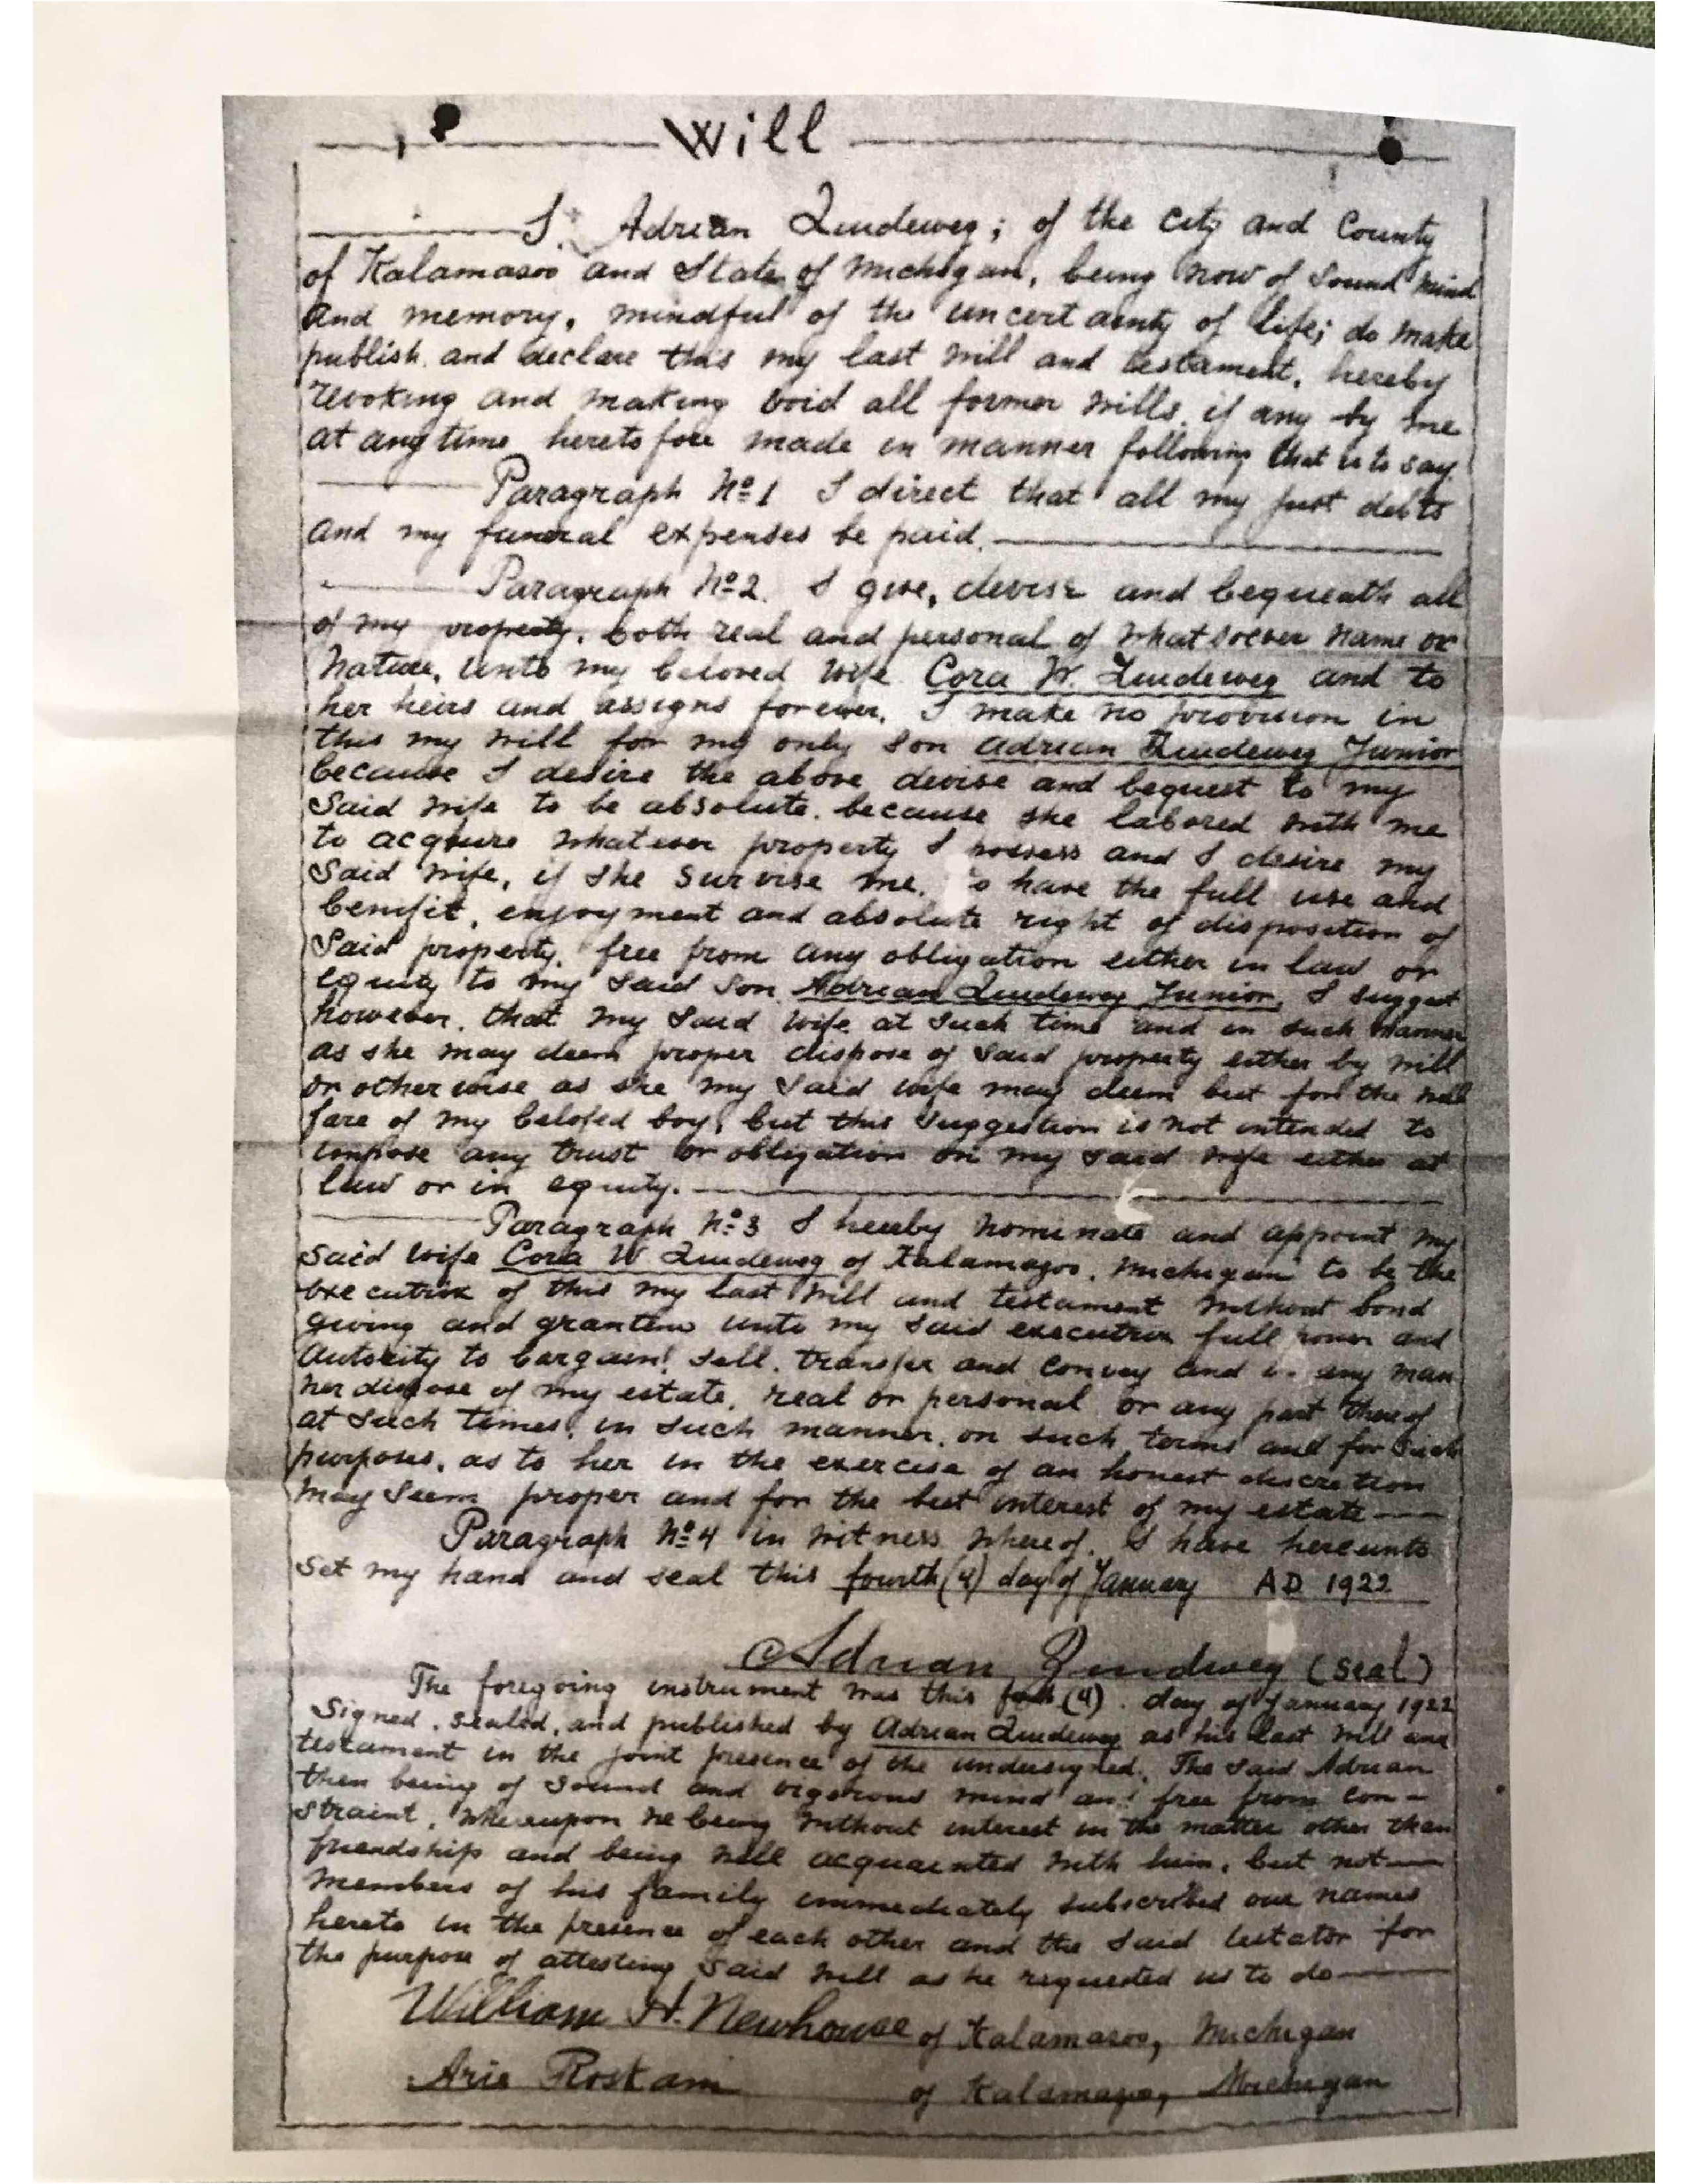 Will
I, Adrian Zuideweg; of the City and County
of Kalamasoo and State of Michigan, being now of sound mind
and memory, mindful of the uncertainty of life; do make
publish and declare this my last will and testament, hereby
revoking and making void all former wills, if any by me
at any time heretofore made in manner following that is to say.
Paragraph No 1 I direct that all my just debts
and my funeral expenses be paid.
Paragraph No 2. I give, devise and bequeath all
of my property, both real and personal of whatsoever name or
nature, unto my beloved wife Cora W. Zuideweg and to
her heirs and assigns forever, I make no provision in
this my will for my only son Adrian Zuideweg Junior
because I desire the above devise and bequest to my
said wife to be absolute, because she labored with me
to acquire whatever property I possess and I desire my
said wife, if she survive me, to have the full use and
benefit, enjoyment and absolute right of disposition of
said property, free from any obligation either in law or
equity to my said son Adrian Zuideweg Junior, I suggest
however, that my said wife at such time and in such manner
as she may deem proper dispose of said property either by will
or otherwise as she my said wife may deem best for the well
fare of my belofed boy, but this suggestion is not intended to
impose any trust or obligation on my said wife either at
law or in equity.
Paragraph No 3 I hereby nominate and appoint my
said wife Cora W Zuideweg of Kalamazoo, Michigan to be the
executrix of this my last will and testament without bond
giving and granting unto my said executrix full power and
autority to bargain, sell, transfer and convey and in any man
ner dispose of my estate, real or personal or any part thereof
at such times, in such manner, on such terms and for such
purposes, as to her in the exercise of an honest discretion
may seem proper and for the best interest of my estate
Paragraph No 4 in witness whereof, I have hereunto
set my hand and seal this fourth (4) day of January AD 1922
Adrian Zuideweg (Seal)
The foregoing instrument was this (4). day of January 1922
signed, sealed, and published by Adrian Zuideweg as his last will and
testament in the joint presence of the undersigned. The said Adrian
then being of sound and vigorous mind and free from con-
straint. Whereupon we being without interest in the matter other than
friendship and being well acquainted with him, but not
members of his family immediately subscribed our names
hereto in the presence of each other and the said testator for
the purpose of attesting said will as he requested us to do
William H. Newhouse of Kalamasoo, Michigan
Arie Roskam of Kalamazoo, Michigan